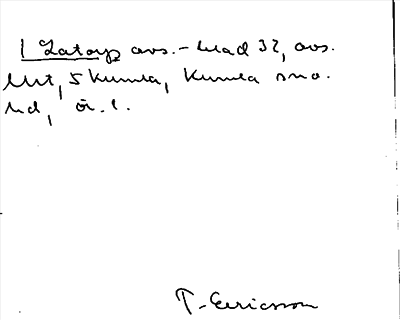 1 Zatorp avs. - blad 32, avs.
Utt, S Kumla, Kumla sn o.
hd, Ör. l.
T. Ericsson